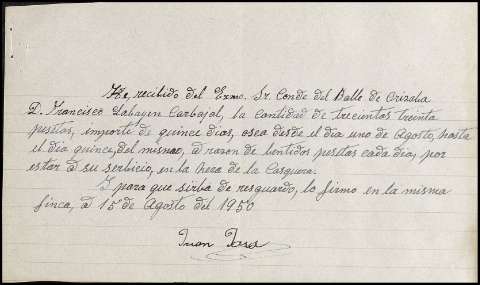 He, recibido del Exmo. Sr. Conde del Balle de Orizaba
D. Francisco Labayen Carbajal, la cantidad de trecientas treinta
pesetas, importe de quince dias, osea desde el dia uno de Agosto, hasta
el dia quince, del mismo, á razon de bentidos pesetas cada dia, por
estar á su serbicio, en la de la
I para que sirba de resguardo, lo firmo en la misma
finca, á 15 de Agosto del 1950
Juan